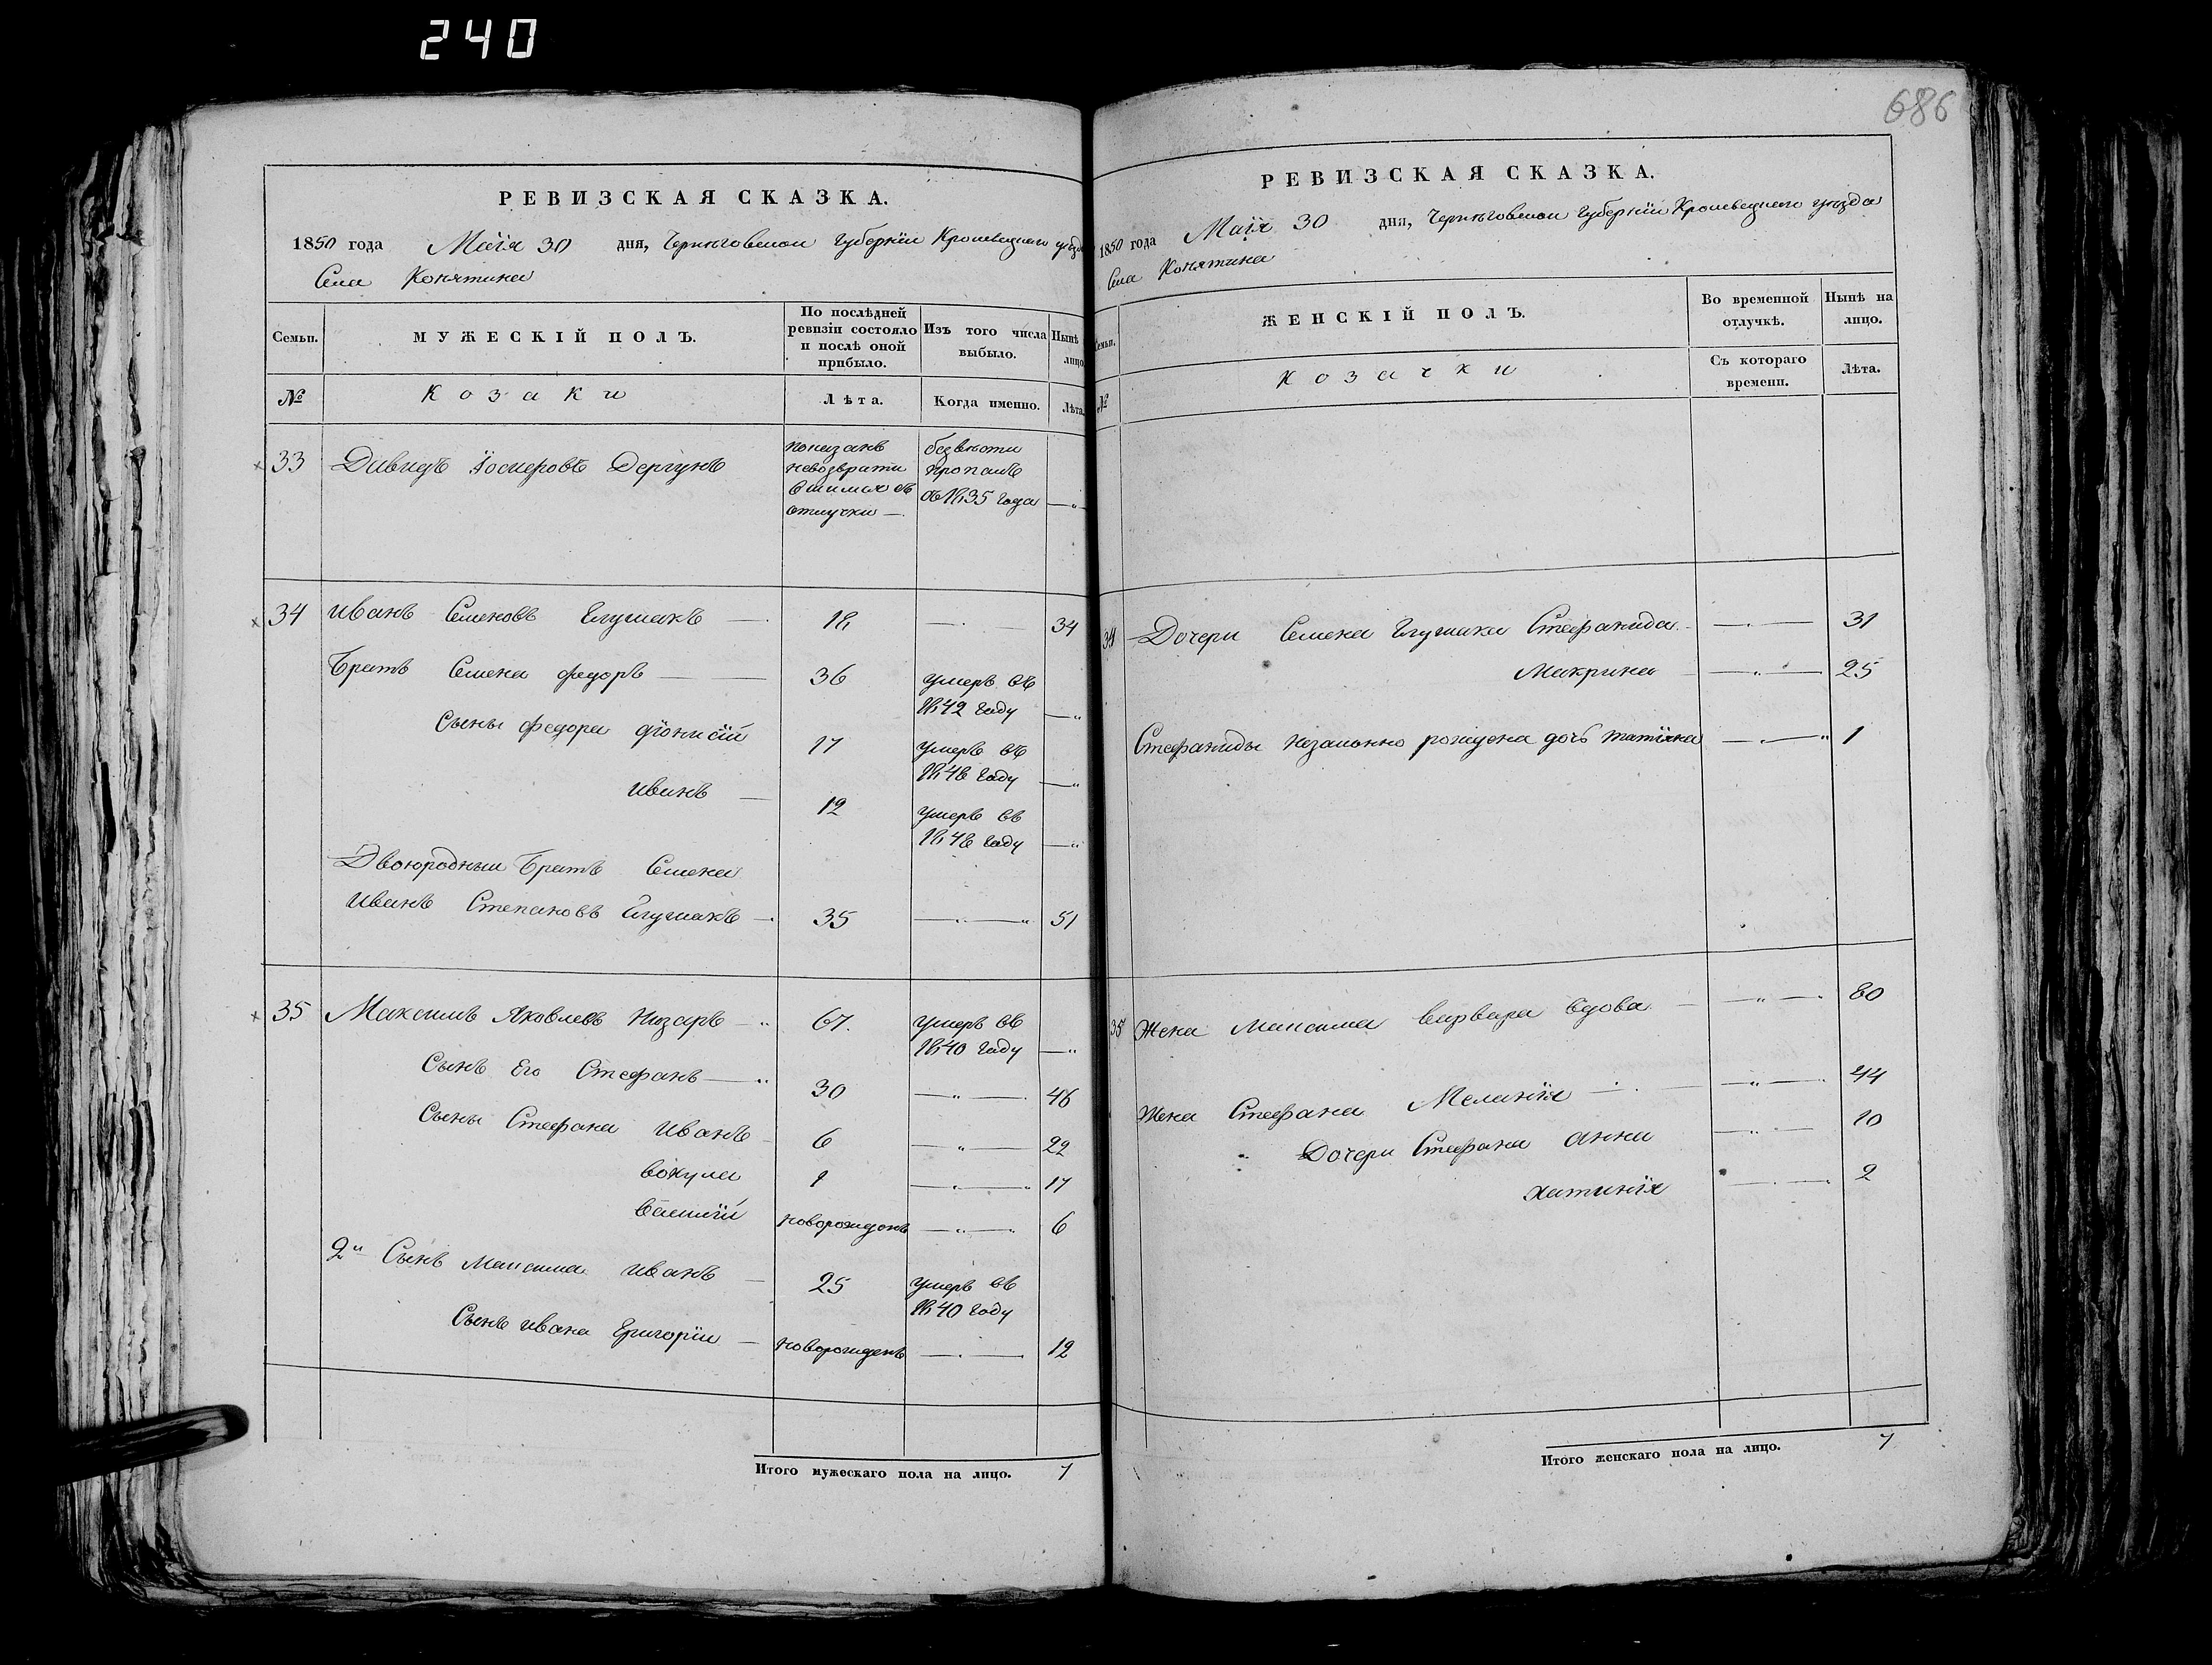 240
686
РЕВИЗСКАЯ СКАЗКА.
1850 года Маія 30 дня, Черниговской Губерніи Кролевецкаго уѣзда
Села Конятина
Семьи. МУЖЕСКІЙ ПОЛЪ. По послѣдней ревизіи состояло и послѣ оной прибыло. Изъ того числа выбыло. Нынѣ лицо
№ Козаки Лѣта. Когда именно. Лѣта.
33 Давидъ Іосифовъ Дергунъ показанъ безвѣсти
невозврати пропалъ
вшимся съ съ 1835 года —„
отлучки —
34 Иванъ Семеновъ Глушакъ — 18 — 34
Братъ Семена Федоръ — 36 умеръ въ
1842 году —„
Сыны Федора Діонисій 17 умеръ въ
1848 году —„
Иванъ — 12 умеръ въ
1848 году —„
Двоюродный Братъ Семена
Иванъ Степановъ Глушакъ — 35 —„— 51
35 Максимъ Яковлевъ 67. умеръ въ
1840 году —„
Сынъ Его Стефанъ — 30 —„— 46
Сыны Стефана Иванъ 6 —„— 22
Вокула 1 —„— 17
Василій новорожденъ —„— 6
2й Сынъ Максима Иванъ — 25 умеръ въ
1840 году
Сынъ Ивана Григорій — новорожденъ — 12
Итого мужескаго пола на лицо. 7
РЕВИЗСКАЯ СКАЗКА.
1850 года Маія 30 дня, Черниговской Губерніи Кролевецкаго уѣзда
Села Конятина
Семьи. ЖЕНСКІЙ ПОЛЪ. Во временной отлучкѣ. Нынѣ на лицо.
№ Козачки Съ котораго времени. Лѣта.
34 Дочери Семена Глушака Стефанида — 31
Макрина —„— 25
Стефаниды незаконно рождена дочь Татіяна —„ 1
35 Жена Максима Варвара вдова —„— 80
Жена Стефана Меланія —„— 44
Дочери Стефана Анна —„— 10
— 2
Итого женскаго пола на лицо. 7